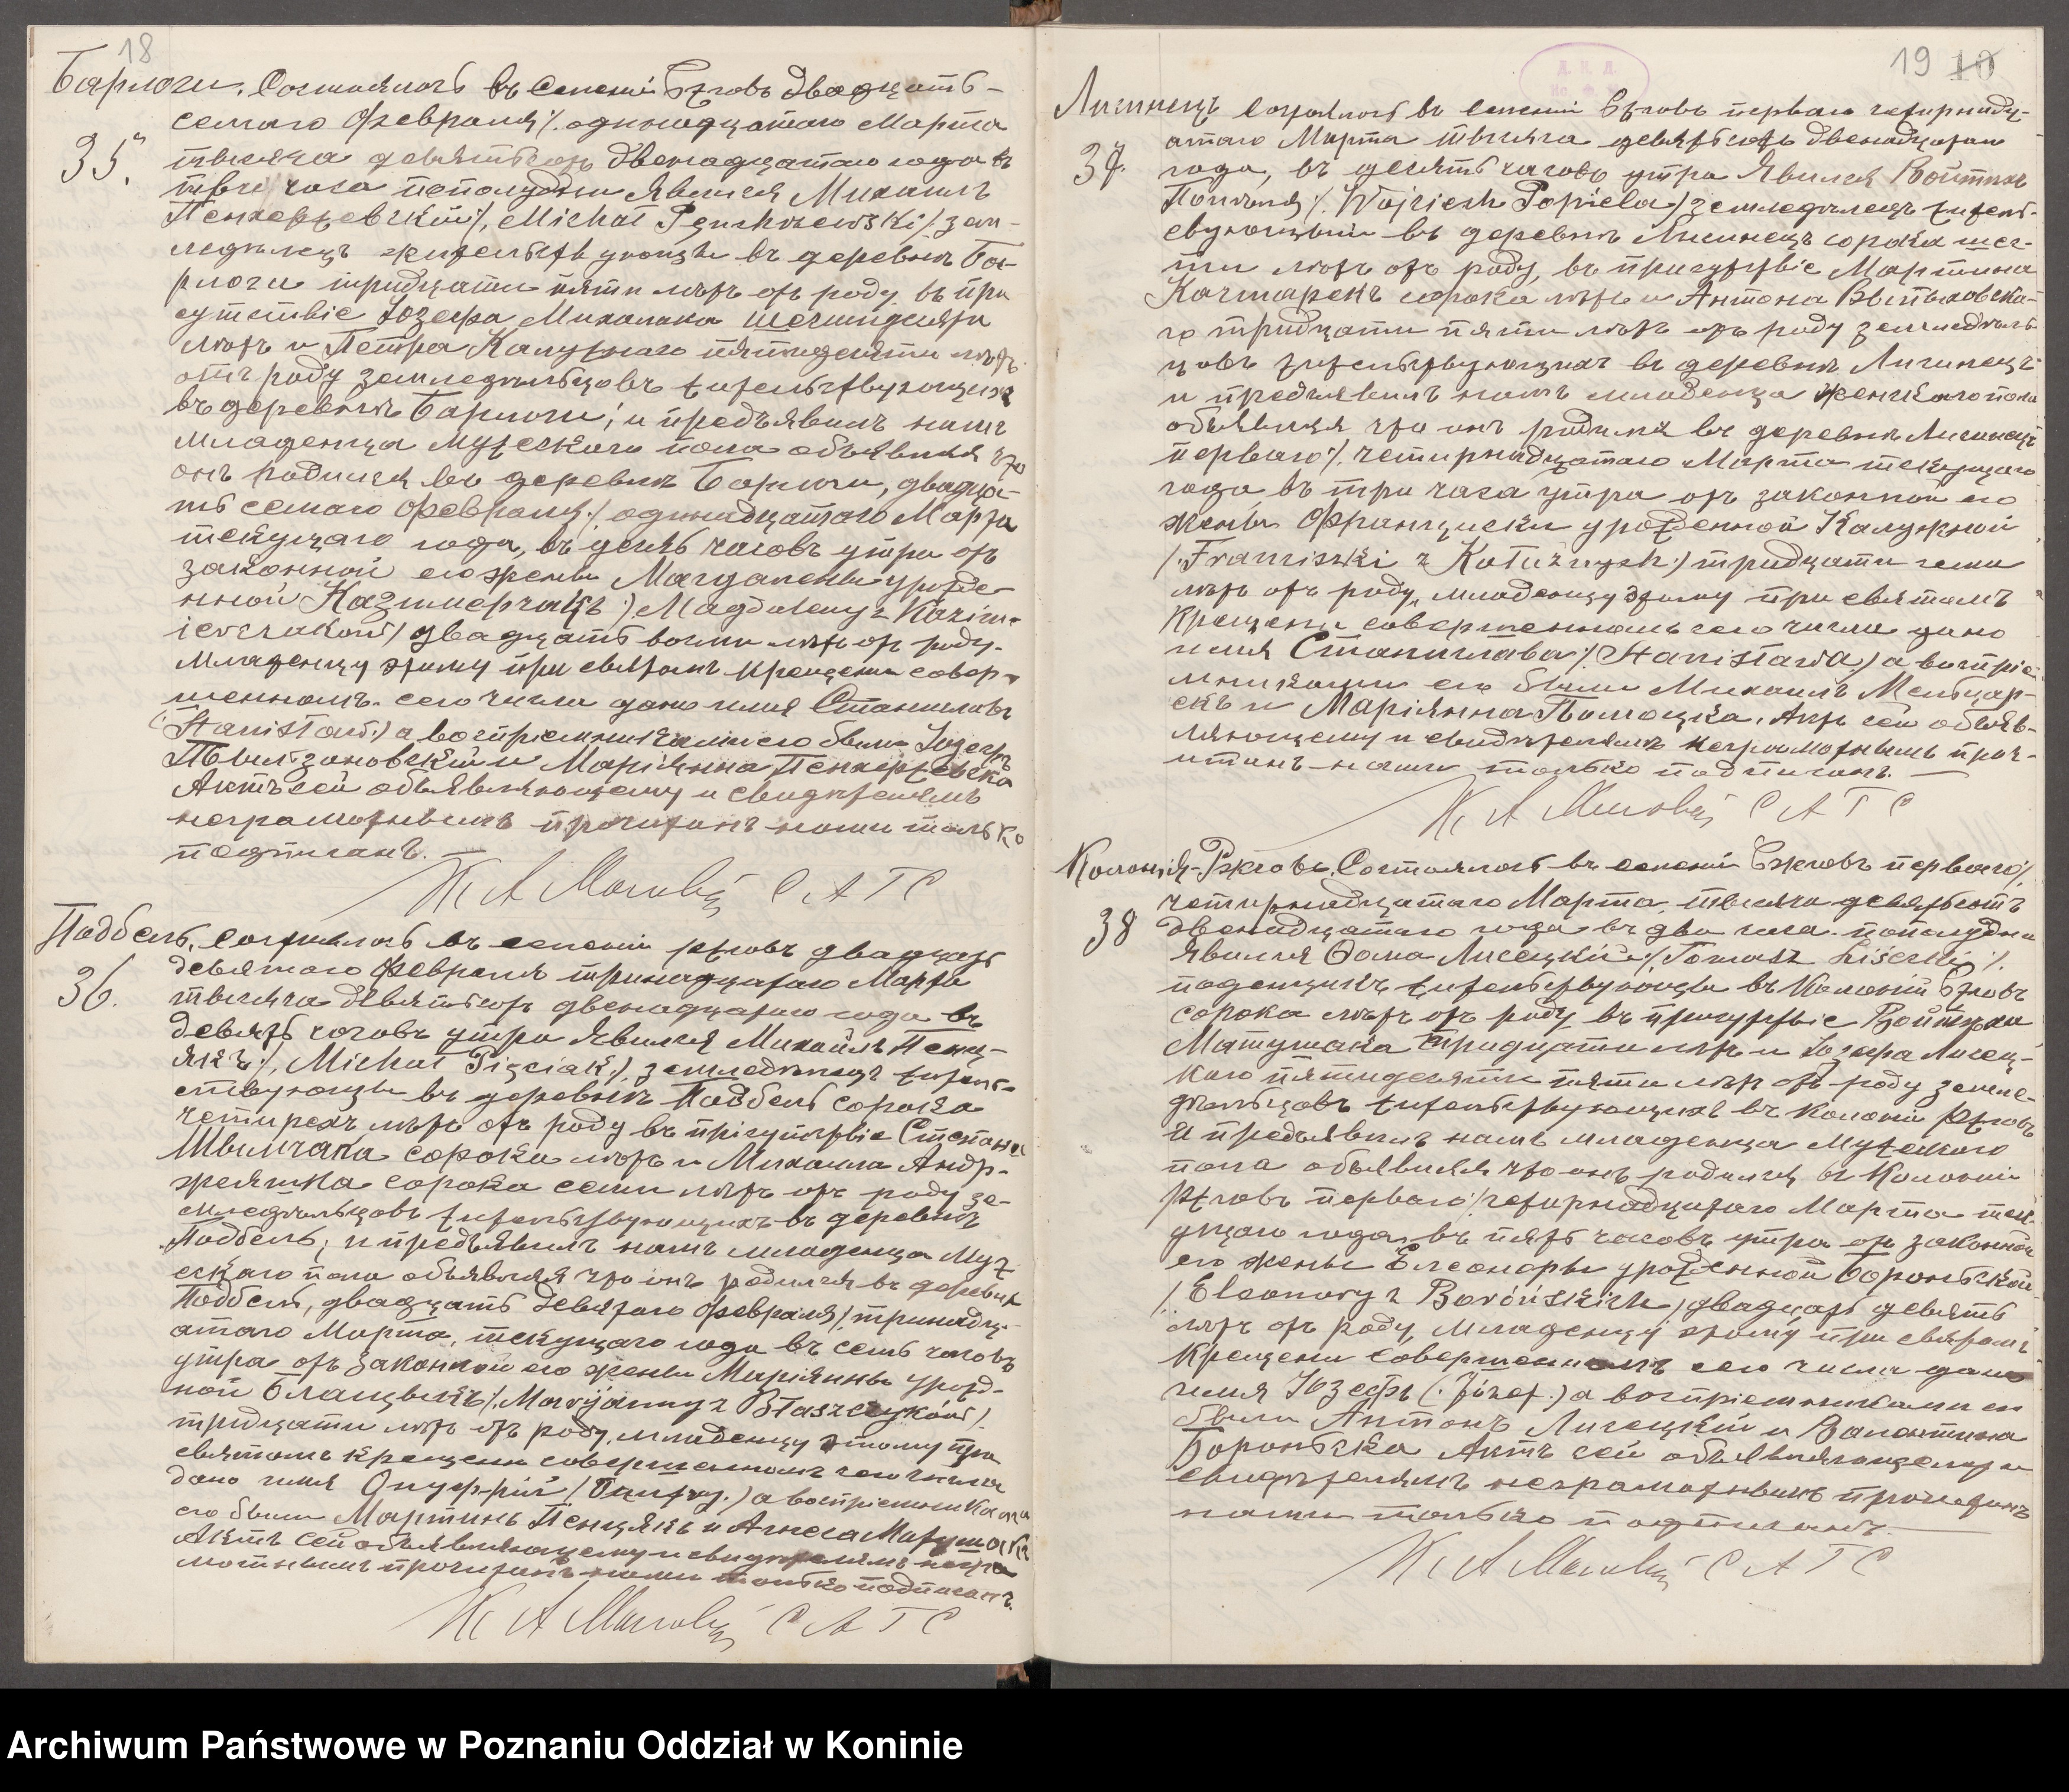 18
Барлоги. Состоялось въ селеніи Бржовъ двадцать-
35.
семаго Февраля /. одинадцатаго Марта
тысяча девятьсотъ двенадцатаго года въ
три часа пополудни Явился Михаилъ
Пенхержевскій /. Michał Pęncherzewski /. зем-
леделецъ жительствующій въ деревни Бар-
логи тридцати пяти летъ отъ роду, въ при
сутствіе Іозефа Михалака шестидесяти
летъ и Петра Калужнаго пятидесяти летъ
отъ роду земледельцовъ жительствующихъ
въ деревни Барлоги; и предъявилъ намъ
младенца мужескаго пола объявляя что
онъ родился въ деревни Барлоги, двадца-
ть семаго Февраля /. одинадцатаго Марта
текущаго года, въ десять часовъ утра отъ
законной его жены Магдалены урожде-
нной Казимерчакъ /. Magdaleny z Kazim-
ierczaków / двадцать восми летъ отъ роду.
Младенцу этому при святомъ крещени совер-
шенномъ сего числа дано имя Станиславъ
(: Stanisław :) а воспріемниками его были Іозефъ
и Маріянна Пенхержевска
Актъ сей объявляющему и свидетелямъ
неграмотнымъ прочитанъ нами только
подписанъ. —
САГС
Поддбель. Состоялось въ селеніи Ржговъ двадцать
36.
девятаго Февраля тринадцатаго Марта
тысяча девятьсотъ двенадцатаго года въ
девять часовъ утра Явился Михаилъ Пенц-
якъ /. Michał Pięciak /. земледелецъ житель-
ствующи въ деревни Поддбель сорока
четирехъ летъ отъ роду въ присутствіе Степана
Швимчака сорока летъ и Михаила Андр-
жеяшка сорока семи летъ отъ роду зе-
мледельцовъ жительствующихъ въ деревни
Поддбель, и предъявилъ намъ младенца муж-
ескаго пола объявляя что онъ родился въ деревни
Поддбель, двадцать девятаго Февраля /. тринадц-
атаго Марта, текущаго года въ семь часовъ
утра отъ законной его жены Маріянны урожд-
ной Блащыкъ /. Maryanny z Błaszczyków /.
тридцати летъ отъ роду, младенцу этому при
святомъ крещени совершенномъ сего числа
дано имя Онуфрій / Onufry. / а воспріемниками
его были Мартинъ Пенцякъ и Агнеса Матушакъ
Актъ сей объявляющему и свидетелямъ негра
мотнымъ прочитанъ нами только подписанъ.
САГС
19 10
Лисинецъ Состоялось въ селеніи Бржовъ перваго четирнадц-
37.
атаго Марта тысяча девятьсотъ двенадцатаго
года, въ десять часовъ утра Явился Войтехъ
Попеля /. Wojciech Popiela / земледелецъ жительст-
вующій въ деревни Лисинецъ сорока шес-
ти летъ отъ роду, въ присутствіе Мартина
Качмарекъ сорока летъ и Антона
го тридцати пяти летъ отъ роду земледель-
цовъ жительствующихъ въ деревни Лисинецъ
и предъявилъ намъ младенца женскаго пола
объявляя что онъ родился въ деревни Лисинецъ
перваго /. четирнадцатаго Марта текущаго
года въ три часа утра отъ законной его
жены Францишки урожденной Калужной
/. Franciszki z Kałużnych :/ тридцати семи
летъ отъ роду, младенцу этому при святомъ
крещени совершенномъ сего числа дано
имя Станислава /. Stanisława ./ а воспріе-
мниками его были Михаилъ Мельцар-
екъ и Маріянна Помоцка. Актъ сей объяв-
ляющему и свидетелямъ неграмотнымъ проч-
итанъ нами только подписанъ. —
САГС
Колонія-Ржговъ. Состоялось въ селеніи Бржовъ перваго /.
38
четирнадцатаго Марта, тысяча девятьсотъ
двенадцатаго года въ два часа пополудни
Явился Фома Лисецкій /. Tomasz Lisiecki /.
поденщикъ жительствующи въ Колоніи Бржовъ
сорока летъ отъ роду, въ присутствіе Войтеха
Матушака тридцати летъ и Іозефа Лисец-
каго пятидесяти пяти летъ отъ роду земле-
дельцовъ жительствующихъ въ Колоніи Ржговъ
и предъявилъ намъ младенца мужескаго
пола объявляя что онъ родился въ Колоніи
Ржговъ перваго /. четирнадцатаго Марта тек-
ущаго года, въ пять часовъ утра отъ законной
его жены Елеоноры урожденной Боронской
/. Eleonory z Borońskich / двадцать девять
летъ отъ роду, младенцу этому при святомъ
крещени совершенномъ сего числа дано
имя Іозефъ (. Józef .) а воспріемниками его
были Антонъ Лисецкій и Валентина
Боронська Актъ сей объявляющему и
свидетелямъ неграмотнымъ прочитанъ
нами только подписанъ. —
САГС
Archiwum Państwowe w Poznaniu Oddział w Koninie